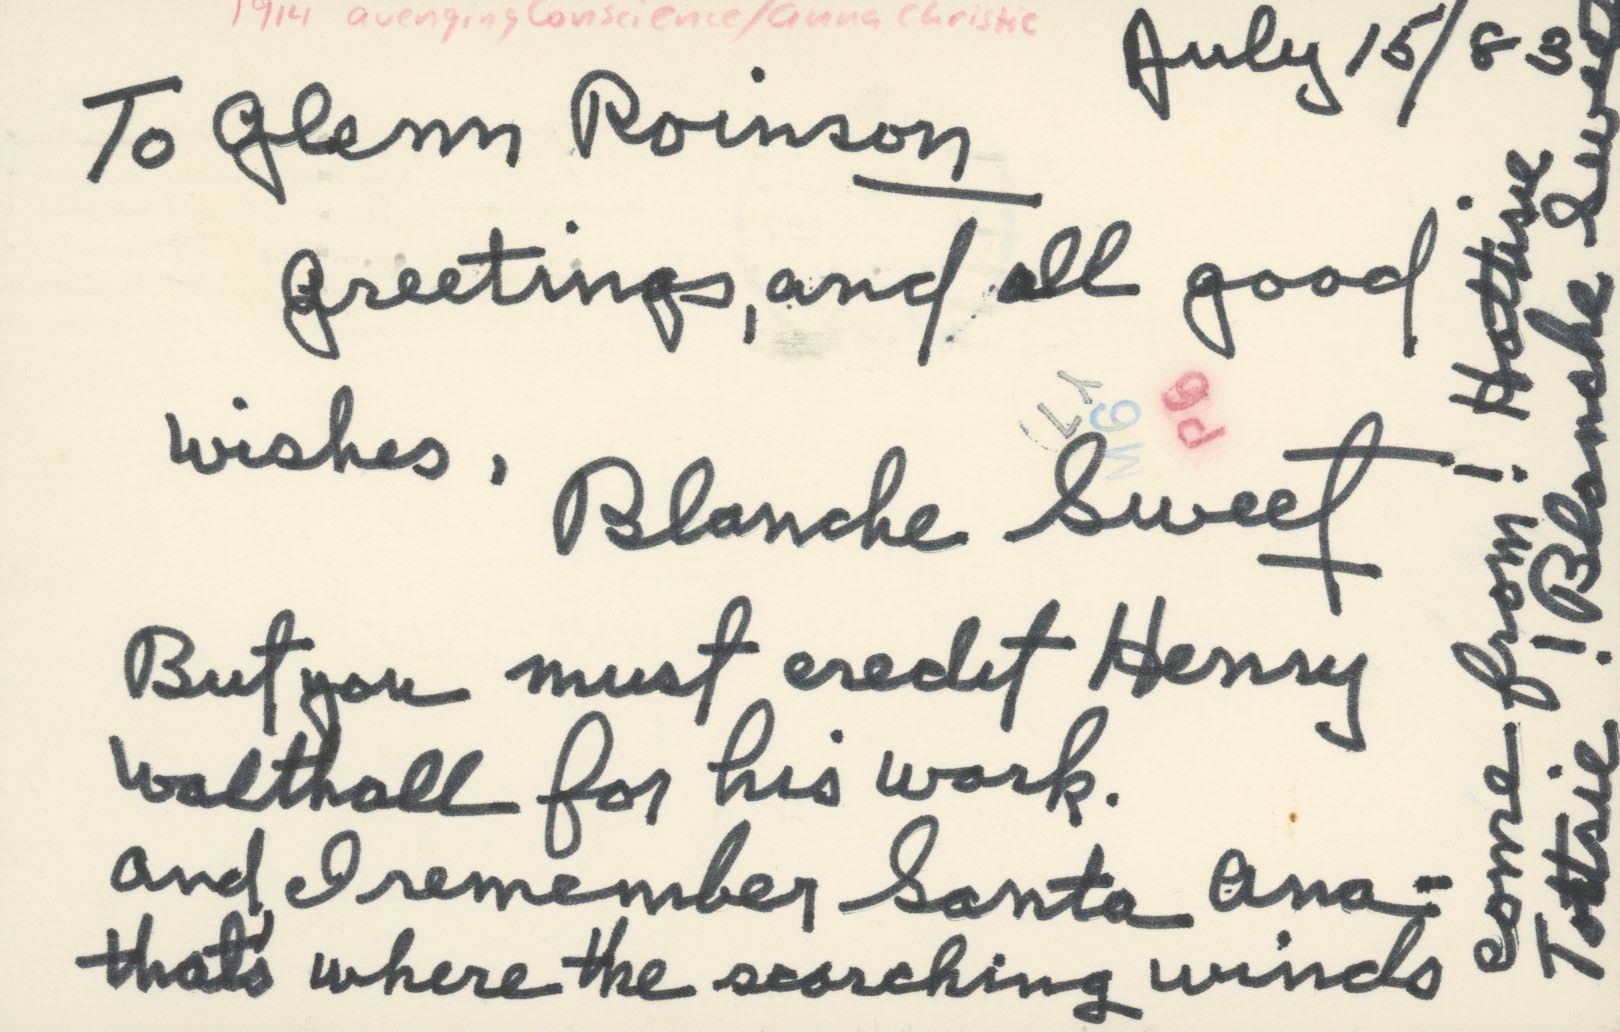 1914 avenging Conscience/Anna Christie
July 15/83
To Glenn Roinson
greetings, and all good
wishes,
Blanche Sweet
But you must credit Henry
Walthall for his work.
And I remember Santa Ana -
that's where the scorching winds
come from! Hottsie
Tottsie! Blanche Sweet
PG